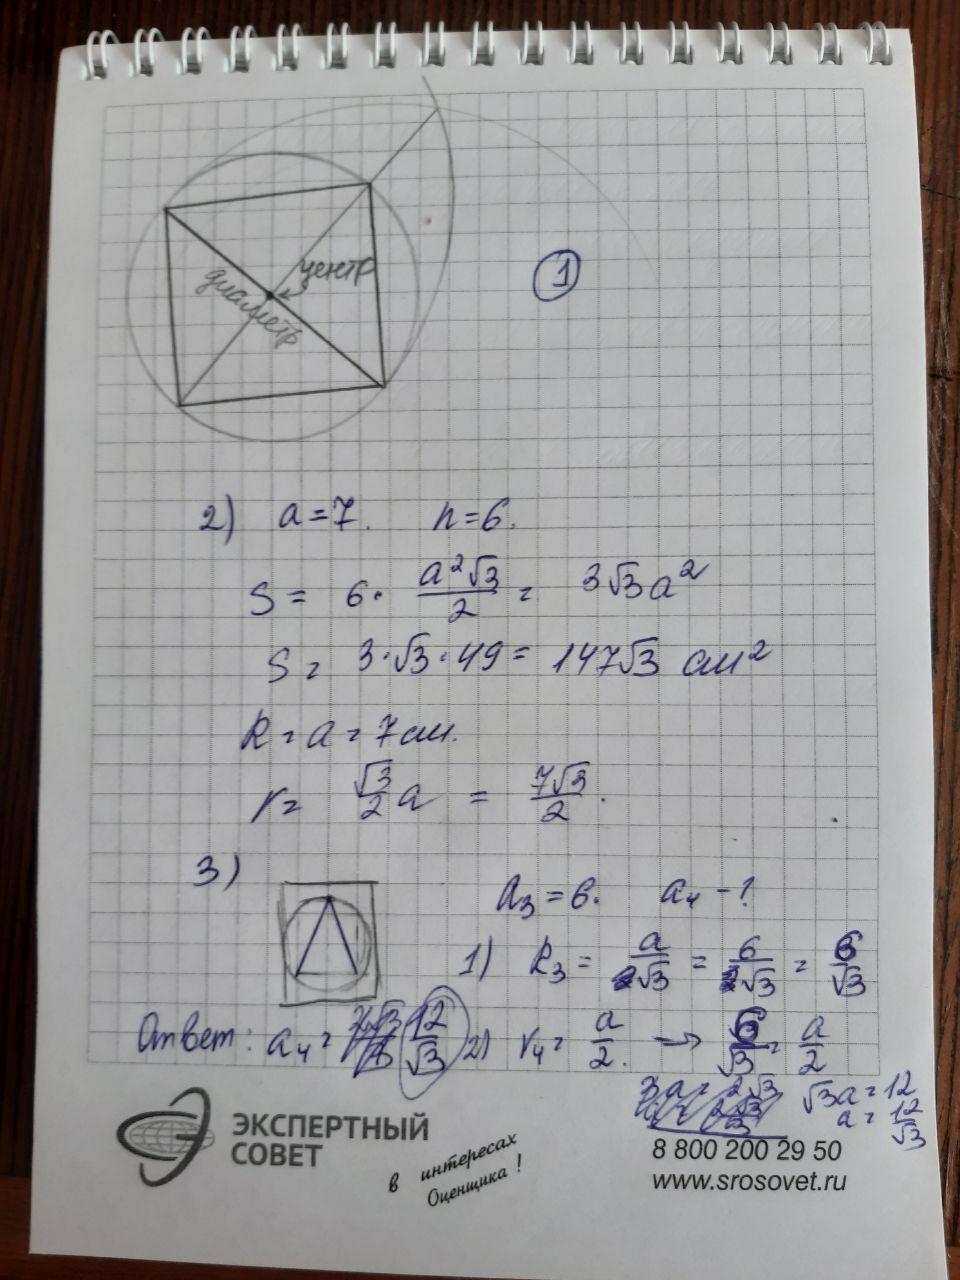 центр
диаметр
1
2) a=7. n=6.
S = 6 · a²√3/2 = 3√3a²
S = 3·√3·49 = 147√3 см²
R = a = 7см.
r = √3/2 a = 7√3/2.
3)
a₃=6. a₄ - ?
1) R₃ = a/√3 = 6/√3 = 6/√3
Ответ: a₄ = 12/√3
2) r₄ = a/2. → 6/√3 = a/2
√3a = 12
a = 12/√3
ЭКСПЕРТНЫЙ
СОВЕТ
в интересах
Оценщика !
8 800 200 29 50
www.srosovet.ru